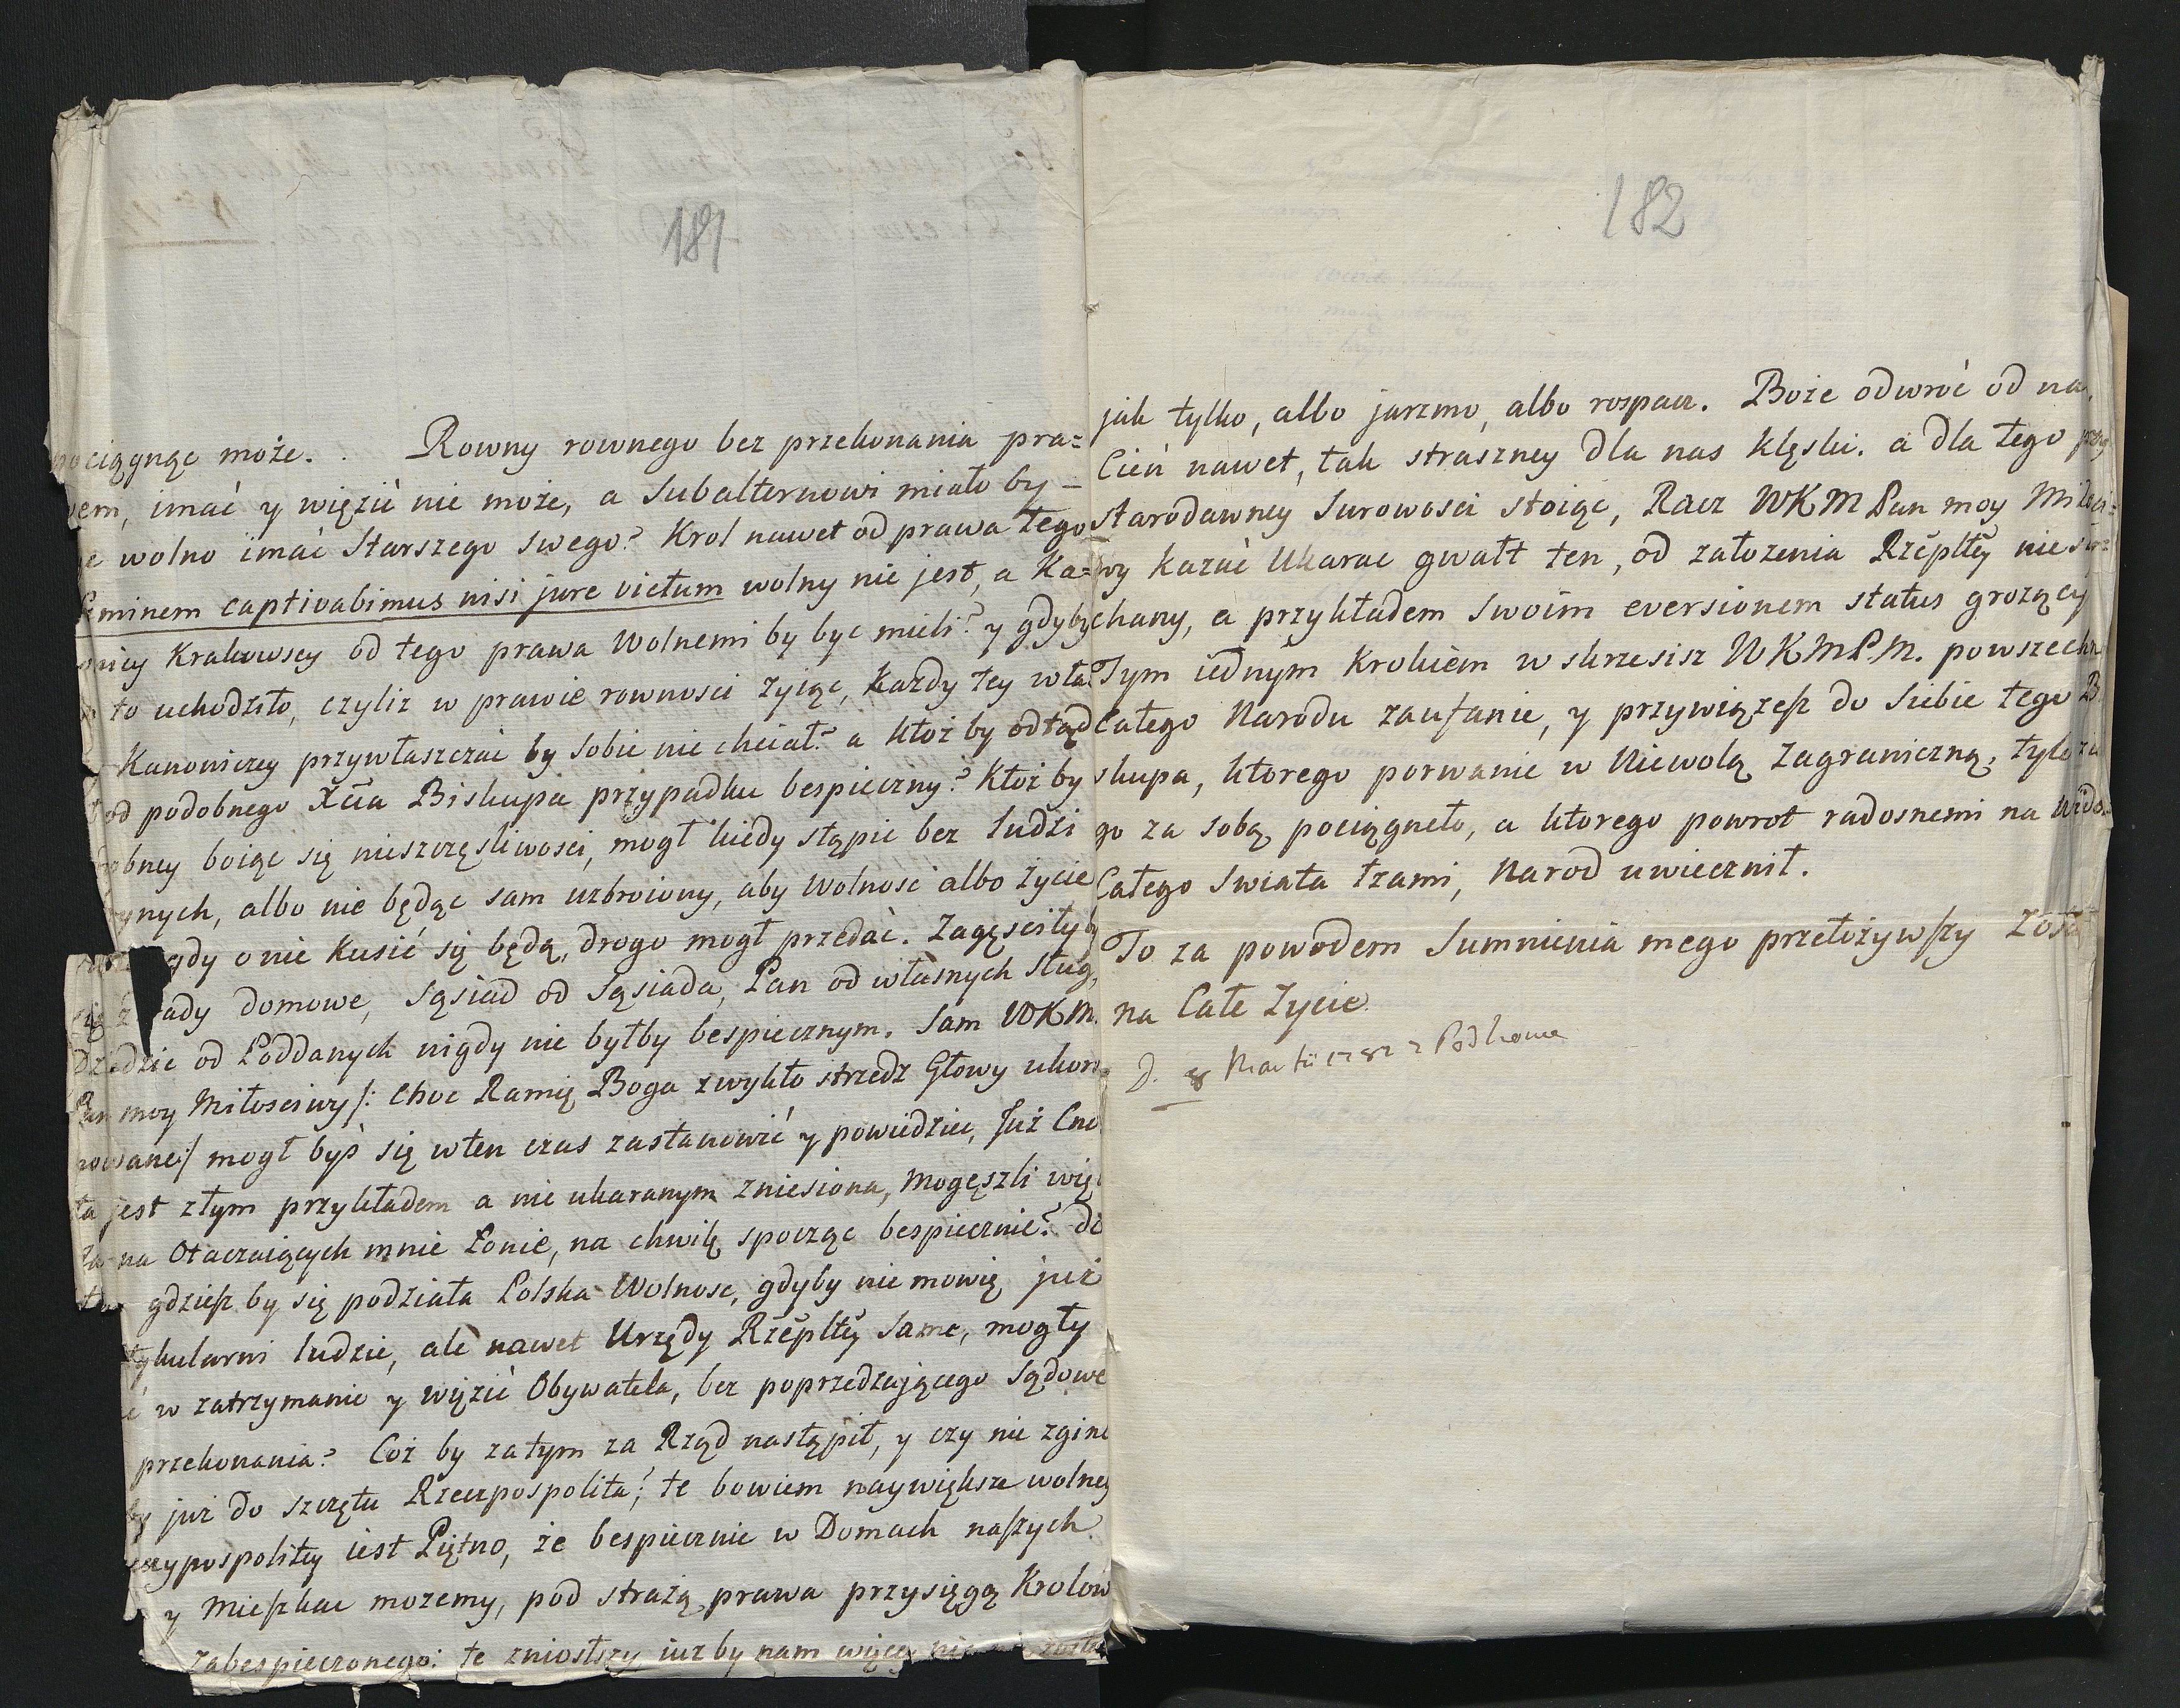 181
pociągnąc może. . Rowny rownego bez przekonania pra=
wem, imać y więzić nie może, a Subalternowi miało by =
wolno imać Starszego swego? Krol nawet od prawa tego
Neminem captivabimus nisi jure victum wolny nie jest, a Ka=
nonicy Krakowscy od tego prawa Wolnemi by byc mieli? y gdyby
to uchodziło, czyliz w prawie rownosci zyiąc, każdy tey wła
Kanoniczey przywłaszczać by sobie nie chciał? a ktoż by odtąd
od podobnego Xcia Biskupa przypadku bespieczny? Ktoż by
boiąc się nieszczęsliwosci, mogł kiedy stąpic bez ludzi
albo nie będąc sam uzbroiony, aby Wolnosc albo życie
gdy o nie kusić się będą, drogo mogł przedać. Zagęsciły by
się zdrady domowe, Sąsiad od Sąsiada, Pan od własnych Sług,
Dziedzic od Poddanych nigdy nie byłby bespiecznym. Sam WKM.
Pan moy Miłosciwy /: choc Ramię Boga zwykło strzedz Głowy ukoro
nowane:/ mogł byś się wten czas zastanowić y powiedziec, Już Cno
ta jest złym przykładem a nie ukaranym zniesiona, mogęszli więc
ja na Otaczaiących mnie Łonie, na chwilę spocząc bespiecznie? do
gdzieſz by się podziała Polska Wolnosc, gdyby nie mowię już
tykularni ludzie, ale nawet Urzędy Rzěpltěy same, mogły
w zatrzymanie y więzić Obywatela, bez poprzedzającego Sądowe
przekonania? Coż by zatym za Rząd nastąpił, y czy nie zgine
by już do szczętu Rzeczpospolita? te bowiem naywiększe wolney
Rzeczypospolitey iest Piętno, że bespiecznie w Domach naſzych
y Mieſzkac mozemy, pod strażą prawa przysięgą Krolow
zabespieczonego: te zniosłszy iuz by nam więcey nie
182
jak tylko, albo jarzmo, albo rospacz. Boże odwróć od na
Cień nawet, tak straszney dla nas klęski. a dla tego przy
starodawney Surowosci stoiąc, Racz WKM Pan moy Miłosci=
wy kazać Ukarac gwałt ten, od założenia Rzěpltěy niesły=
chany, a przykładem swoim eversionem status grozący
Tym iednym Krokiem wskrzesisz WKMPM. powszechne
Całego Narodu zaufanie, y przywiążeſz do Siebie tego Bi
skupa, ktorego porwanie w Niewolą Zagraniczną, tyle złe
go za sobą pociągneło, a ktorego powrot radosnemi na Wido=
Całego Swiata łzami, Narod uwiecznił.
To za powodem Sumnienia mego przełożywſzy Zosta
na Całe Zycie.
D. 8 Martii 1782 z Podhorce